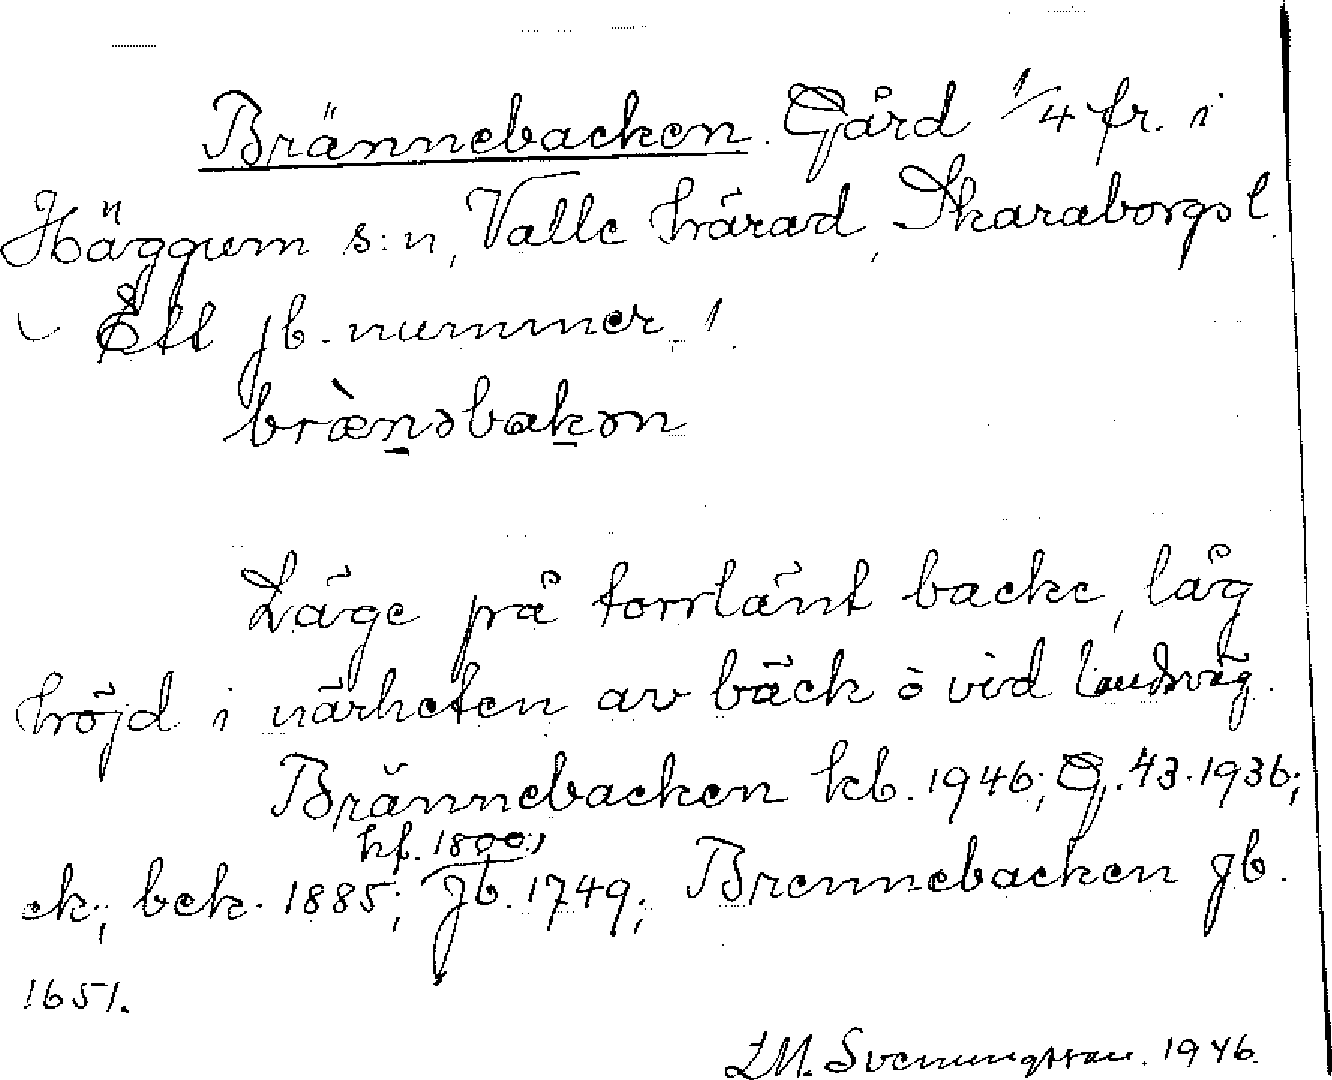 Brännebacken. Gård 1/4 fr. i
Häggum s:n, Valle härad, Skaraborgs l.
Ett jb. nummer 1.
bræ̀nəbakən
Läge på torrlänt backe, låg
höjd i närheten av bäck o vid landsväg.
Brännebacken kb. 1946; G. 43. 1936;
hf. 1800;
ek; bek. 1885; Jb. 1749; Brennebacken Jb.
1651.
Svenungsson. 1946.